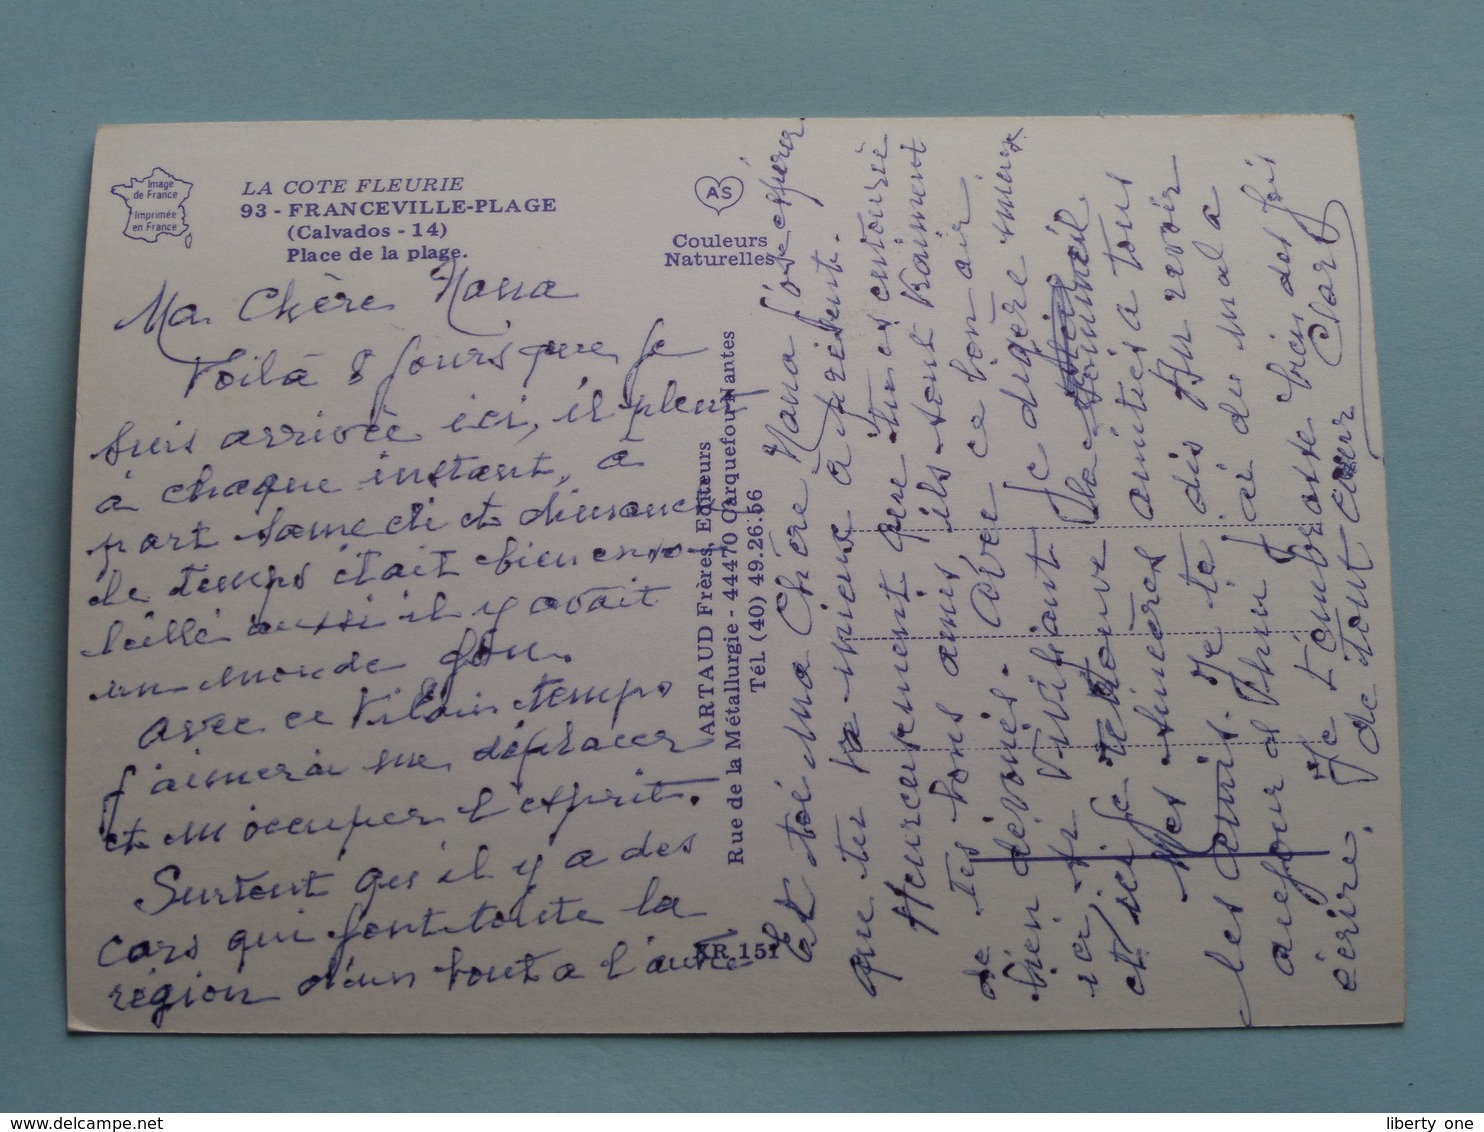 Image
de France
Imprimée
en France
LA COTE FLEURIE
93 - FRANCEVILLE-PLAGE
(Calvados - 14)
Place de la plage.
AS
Couleurs
Naturelles
Ma Chère Nana
Voilà 8 jours que je
suis arrivée ici, il pleut
à chaque instant, à
part samedi et dimanche
le temps était bien enso-
leillé aussi il y avait
un monde fou.
avec ce vilain temps
j'aimerai me déplacer
et m'occuper l'esprit.
Surtout qu'il y a des
cars qui font toute la
région d'un bout a l'autre
ARTAUD Frères, Editeurs
Rue de la Métallurgie - 44470 Carquefou-Nantes
Tél. (40) 49.26.56
KR 151
Et toi ma Chère Nana j'ose espérer
que tu va mieux à présent.
Heureusement que tu es entourée
de tes bons amis ils sont vraiment
bien dévoués. Avec ce bon air
ici, vivifiant je digère mieux
et ici je retrouve le sommeil
Mes sincères amitiés a tous
les amis. Je te dis Au revoir
aujourd'hui j'ai du mal a
écrire. Je t'embrasse bien des fois
de tout cœur